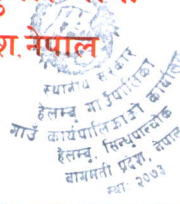 श, नेपाल
स्थानीय सरकार
हेलम्बु गाउँपालिका
गाउँ कार्यपालिकाको कार्यालय
हेलम्बु, सिन्धुपाल्चोक
बागमती प्रदेश, नेपाल
स्था: २०७३